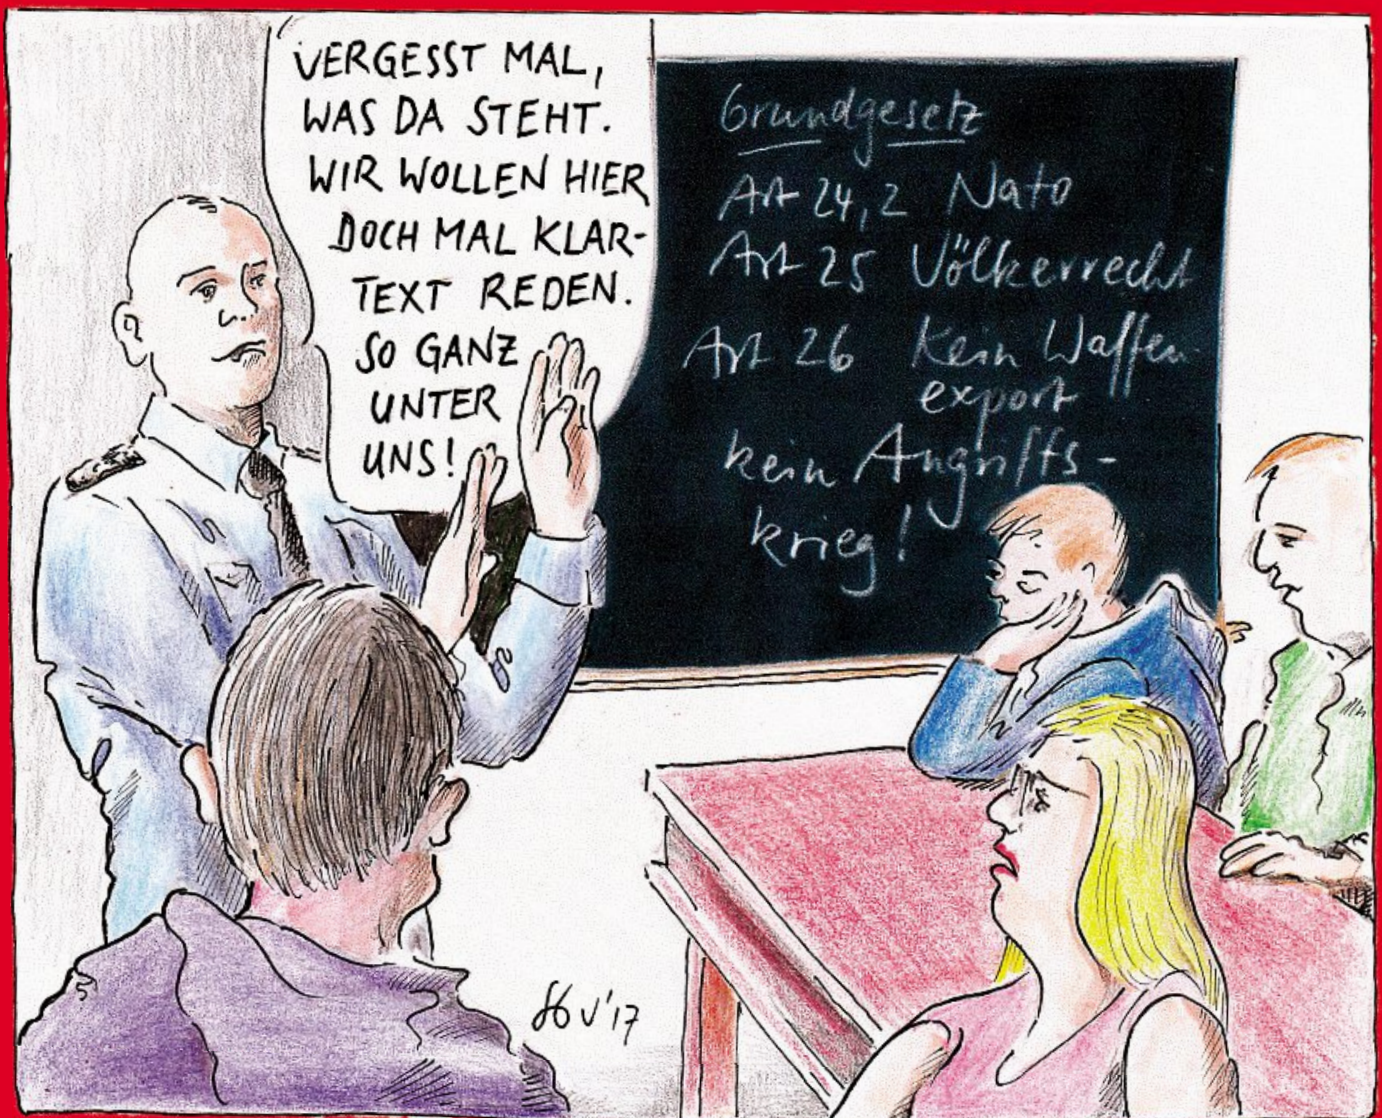 VERGESST MAL,
WAS DA STEHT.
WIR WOLLEN HIER
DOCH MAL KLAR-
TEXT REDEN.
SO GANZ
UNTER
UNS!
Grundgesetz
Art 24,2 Nato
Art 25 Völkerrecht
Art 26 Kein Waffen-
export
kein Angriffs-
krieg!